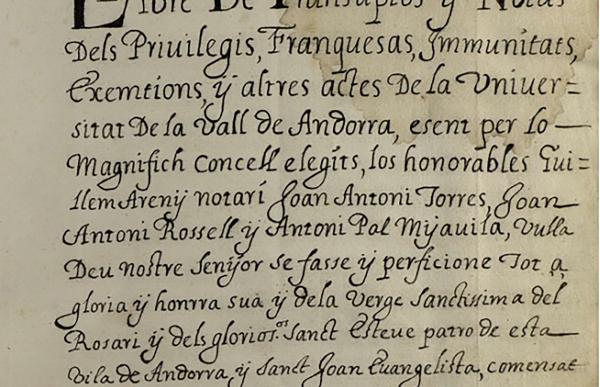 Llibre De Transuptos y Notas
Dels Priuilegis, Franquesas, Immunitats,
Exemtions, ÿ altres actes De la Vniuer=
sitat De la Vall de Andorra, esent per lo
Magnifich Concell elegits, los honorables Gui=
llem Areny notari Joan Antoni Torres, Joan
Antoni Rossell ÿ Antoni Pal Myauila, Vulla
Deu nostre Senÿor se fasse ÿ perficione Tot a
gloria ÿ honrra sua ÿ de la Verge Sanctissima del
Rosari ÿ dels glorios.os Sanct Esteue patro de esta
Vila de Andorra, ÿ Sanct Joan Euangelista, comensat